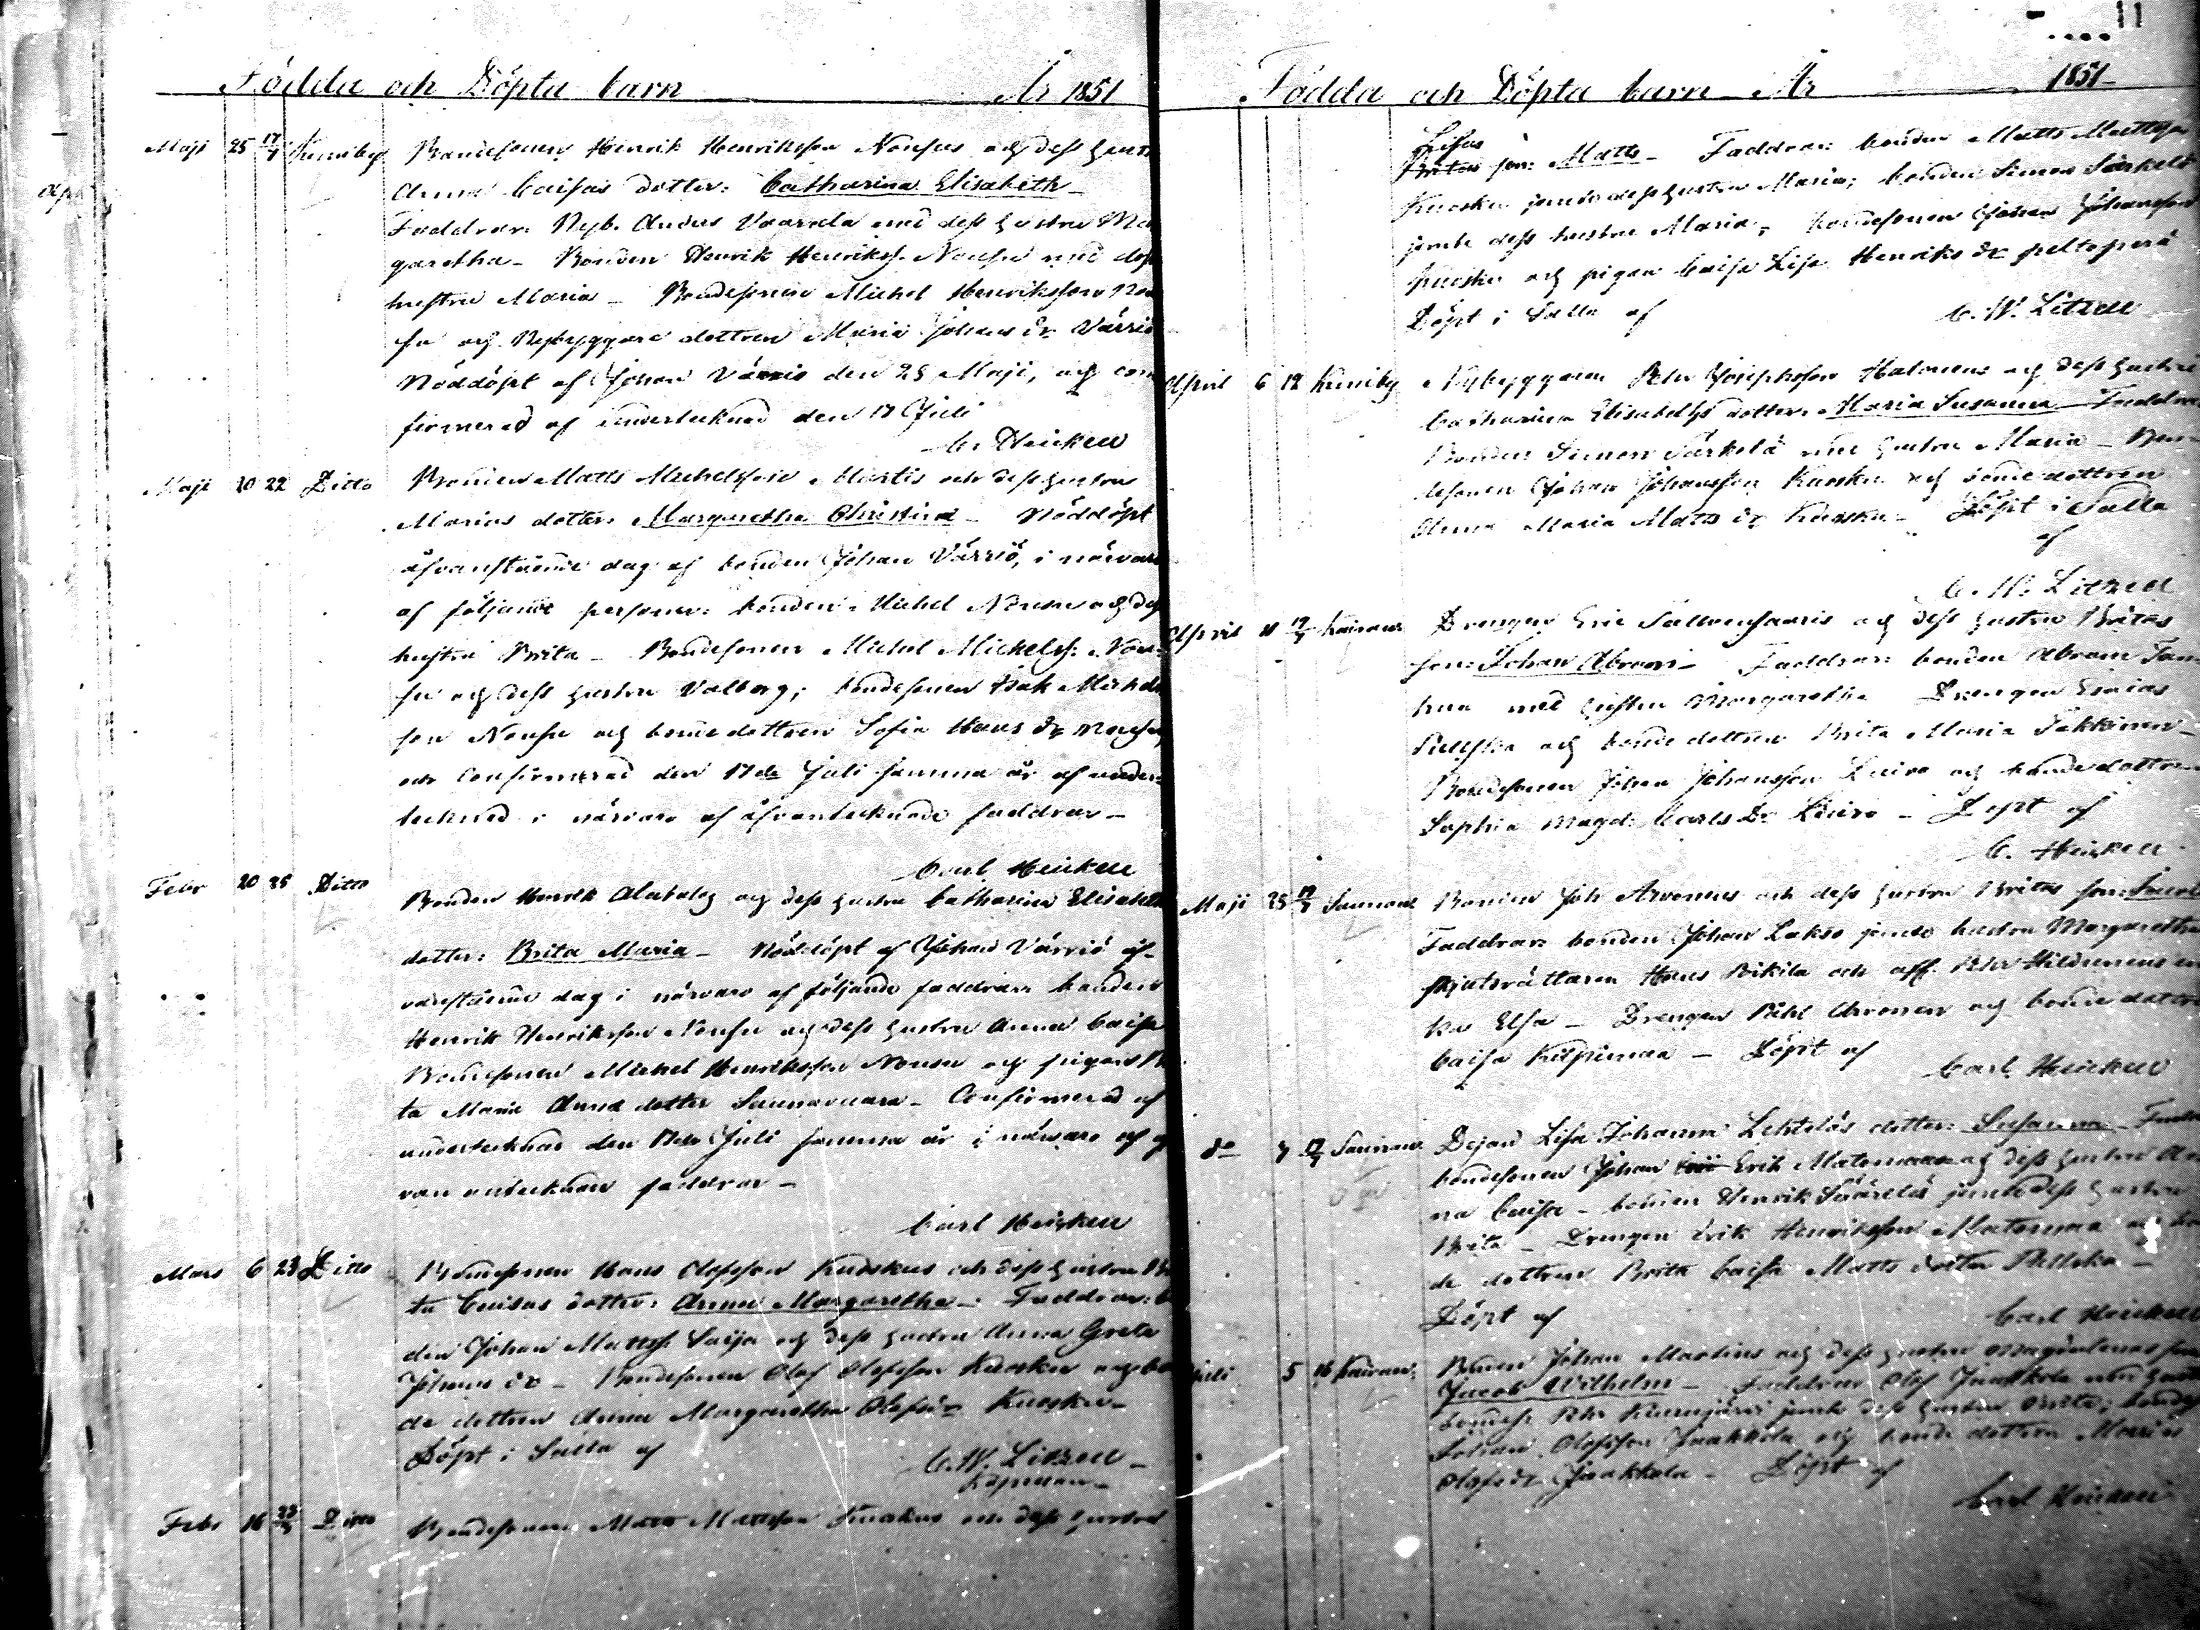 Födda och Döpta barn År 1851
Maji 25 17/7 Kuniby Bondesonen Henrik Henriksson Nousus och dess hust
Anna Caisas dotter: Catharina Elisabeth
Faddrar: Nyb. Anders Vaarala med dess hustru Ma
garetha - Bonden Henrik Henrikss. Nousu med dess
hustru Maria - Bondesonen Michel Henriksson Nou
su och Nybyggare dottren Maria Johans dr Värriö
Nöddöpt af Johan Värriö den 25 Maji, och con
firmerad af undertecknad den 17 Juli
C. Heickell
Maji 20 22 Ditto Bonden Matts Michelsson Martis och dess hustru
Marias dotter: Margaretha Christina - Nöddöpt
åfvanstående dag af bonden Johan Värriö, i närvaro
af följande personer: bonden Michel Nousu och dess
hustru Brita - Bondesonen Michel Michelss: Nou
su och dess hustru Valborg; bondesonen Isak Michels
son Nousu och bonde dottren Sofia Hans dr
och Confirmerad den 17de Juli samma år af under
tecknad i närvaro af åfvantecknade faddrar -
Carl Heickell
Febr 20 25 Ditto Bonden Henrik och dess hustru Catharina Elisabeth
dotter: Brita Maria - Nöddöpt af Johan Värriö åf-
vanstående dag i närvaro af följande faddrar: bonden
Henrik Henriksson Nousu och dess hustru Anna Caisa
Bondesonen Michel Henriksson Nousu och pigan
ta Maria Anna dotter Saunavaara - Confirmerad af
undertecknad den 17de Juli samma år i närvaro af åf
van antecknade faddrar -
Carl Heickell
Mars 6 23 Ditto Bondesonen Hans Olofsson Kuoskus och dess hustru Bri
ta Caisas dotter: Anna Margaretha - Faddrar: b
den Johan Mattss. Saija och dess hustru Anna Greta
Johans dr - Bondesonen Olof Olofsson Kuosku och bon
de dottren Anna Margaretha Olofs dr Kuosku -
Döpt i Salla af C. W. Litzell
Kapellan -
Febr 16 Ditto Bondesonen Matts Mattsson Kuoskus och dess hustru
11
Födda och Döpta barn År 1851
Lisas
Britas son: Matts - Faddrar: bonden Matts Mattsson
Kuosku jemte dess hustru Maria; bonden Simon Särkelä
jemte dess hustru Maria; bondesonen Johan Johansson
Kuosku och pigan Caisa Lisa Henriks dr Peltoperä
Döpt i Salla af C. W. Litzell
April 6 12 Kuniby Nybyggaren Pehr Josephsson Halonens och dess hustru
Catharina Elisabeths dotter: Maria Susanna - Faddrar
Bonden Simon Särkelä med hustru Maria - Bon
desonen Johan Johansson Kuosku och bonde dottren
Anna Maria Matts dr Kuosku - Döpt i Salla
af
C. W. Litzell
April 11 17/7 Kairava Drengen Eric och dess hustru Britas
son: Johan Abram - Faddrar: bonden Abram Tan
hua med hustru Margaretha Drengen Esaias
och bonde dottren Brita Maria
Bondesonen Johan Johansson Luiro och bonde dottren
Sophia Magd. Carls Dr Luiro - Döpt af
C. Heickell
Maji 25 17/7 Bonden Joh Arvonens och dess hustru Britas son:
Faddrar: bonden Johan Lakso jemte hustru Margaretha
skjutsrättaren Hans Pikila och aff. Pehr en
ka Elsa - Drengen Pehl Arvonen och bonde dottren
Caisa Kilpimaa - Döpt af
Carl Heickell
do 7 17/7 Dejan Lisa Johanna Lehteläs dotter: Susanna -
bondesonen Johan Erik Maternaa och dess hustru An
na Caisa - bonden Henrik Säärelä jemte dess hustru
Brita - Drengen Erik Henriksson Maternaa och bon
de dottren Brita Caisa Matts dotter Pelkola -
Döpt af Carl Heickell
juli 5 16 Kairava Bonden Johan Martins och dess hustru Magdalenas son
Jacob Wilhelm - Faddrar Olof Jaakkola med hustru
bondess. Pehr jemte dess hustru Brita; bondes
Johan Olofsson Jaakkola och bonde dottren Maria
Olofs dr Jaakkola - Döpt af
Carl Heickell